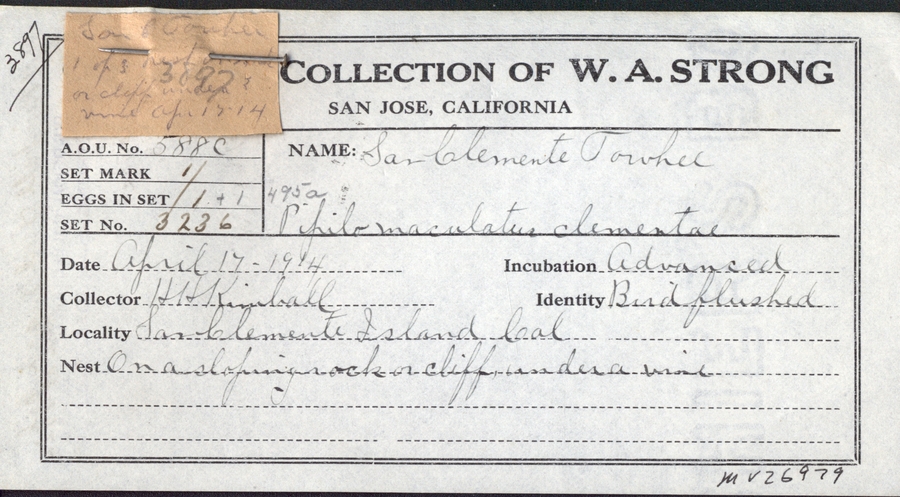 3897
San C Towhee
1 of 3
3897
or cliff under
vine Apr 17-14
COLLECTION OF W. A. STRONG
SAN JOSE, CALIFORNIA
A.O.U. No. 588c
SET MARK 1/
EGGS IN SET /1 + 1
SET No. 3236
NAME: San Clemente Towhee
495a
Pipilo maculatus clementae
Date April 17-1914
Incubation Advanced
Collector H H Kimball
Identity Bird flushed
Locality San Clemente Island Cal
Nest On a sloping rock or cliff, under a vine
MVZ6979